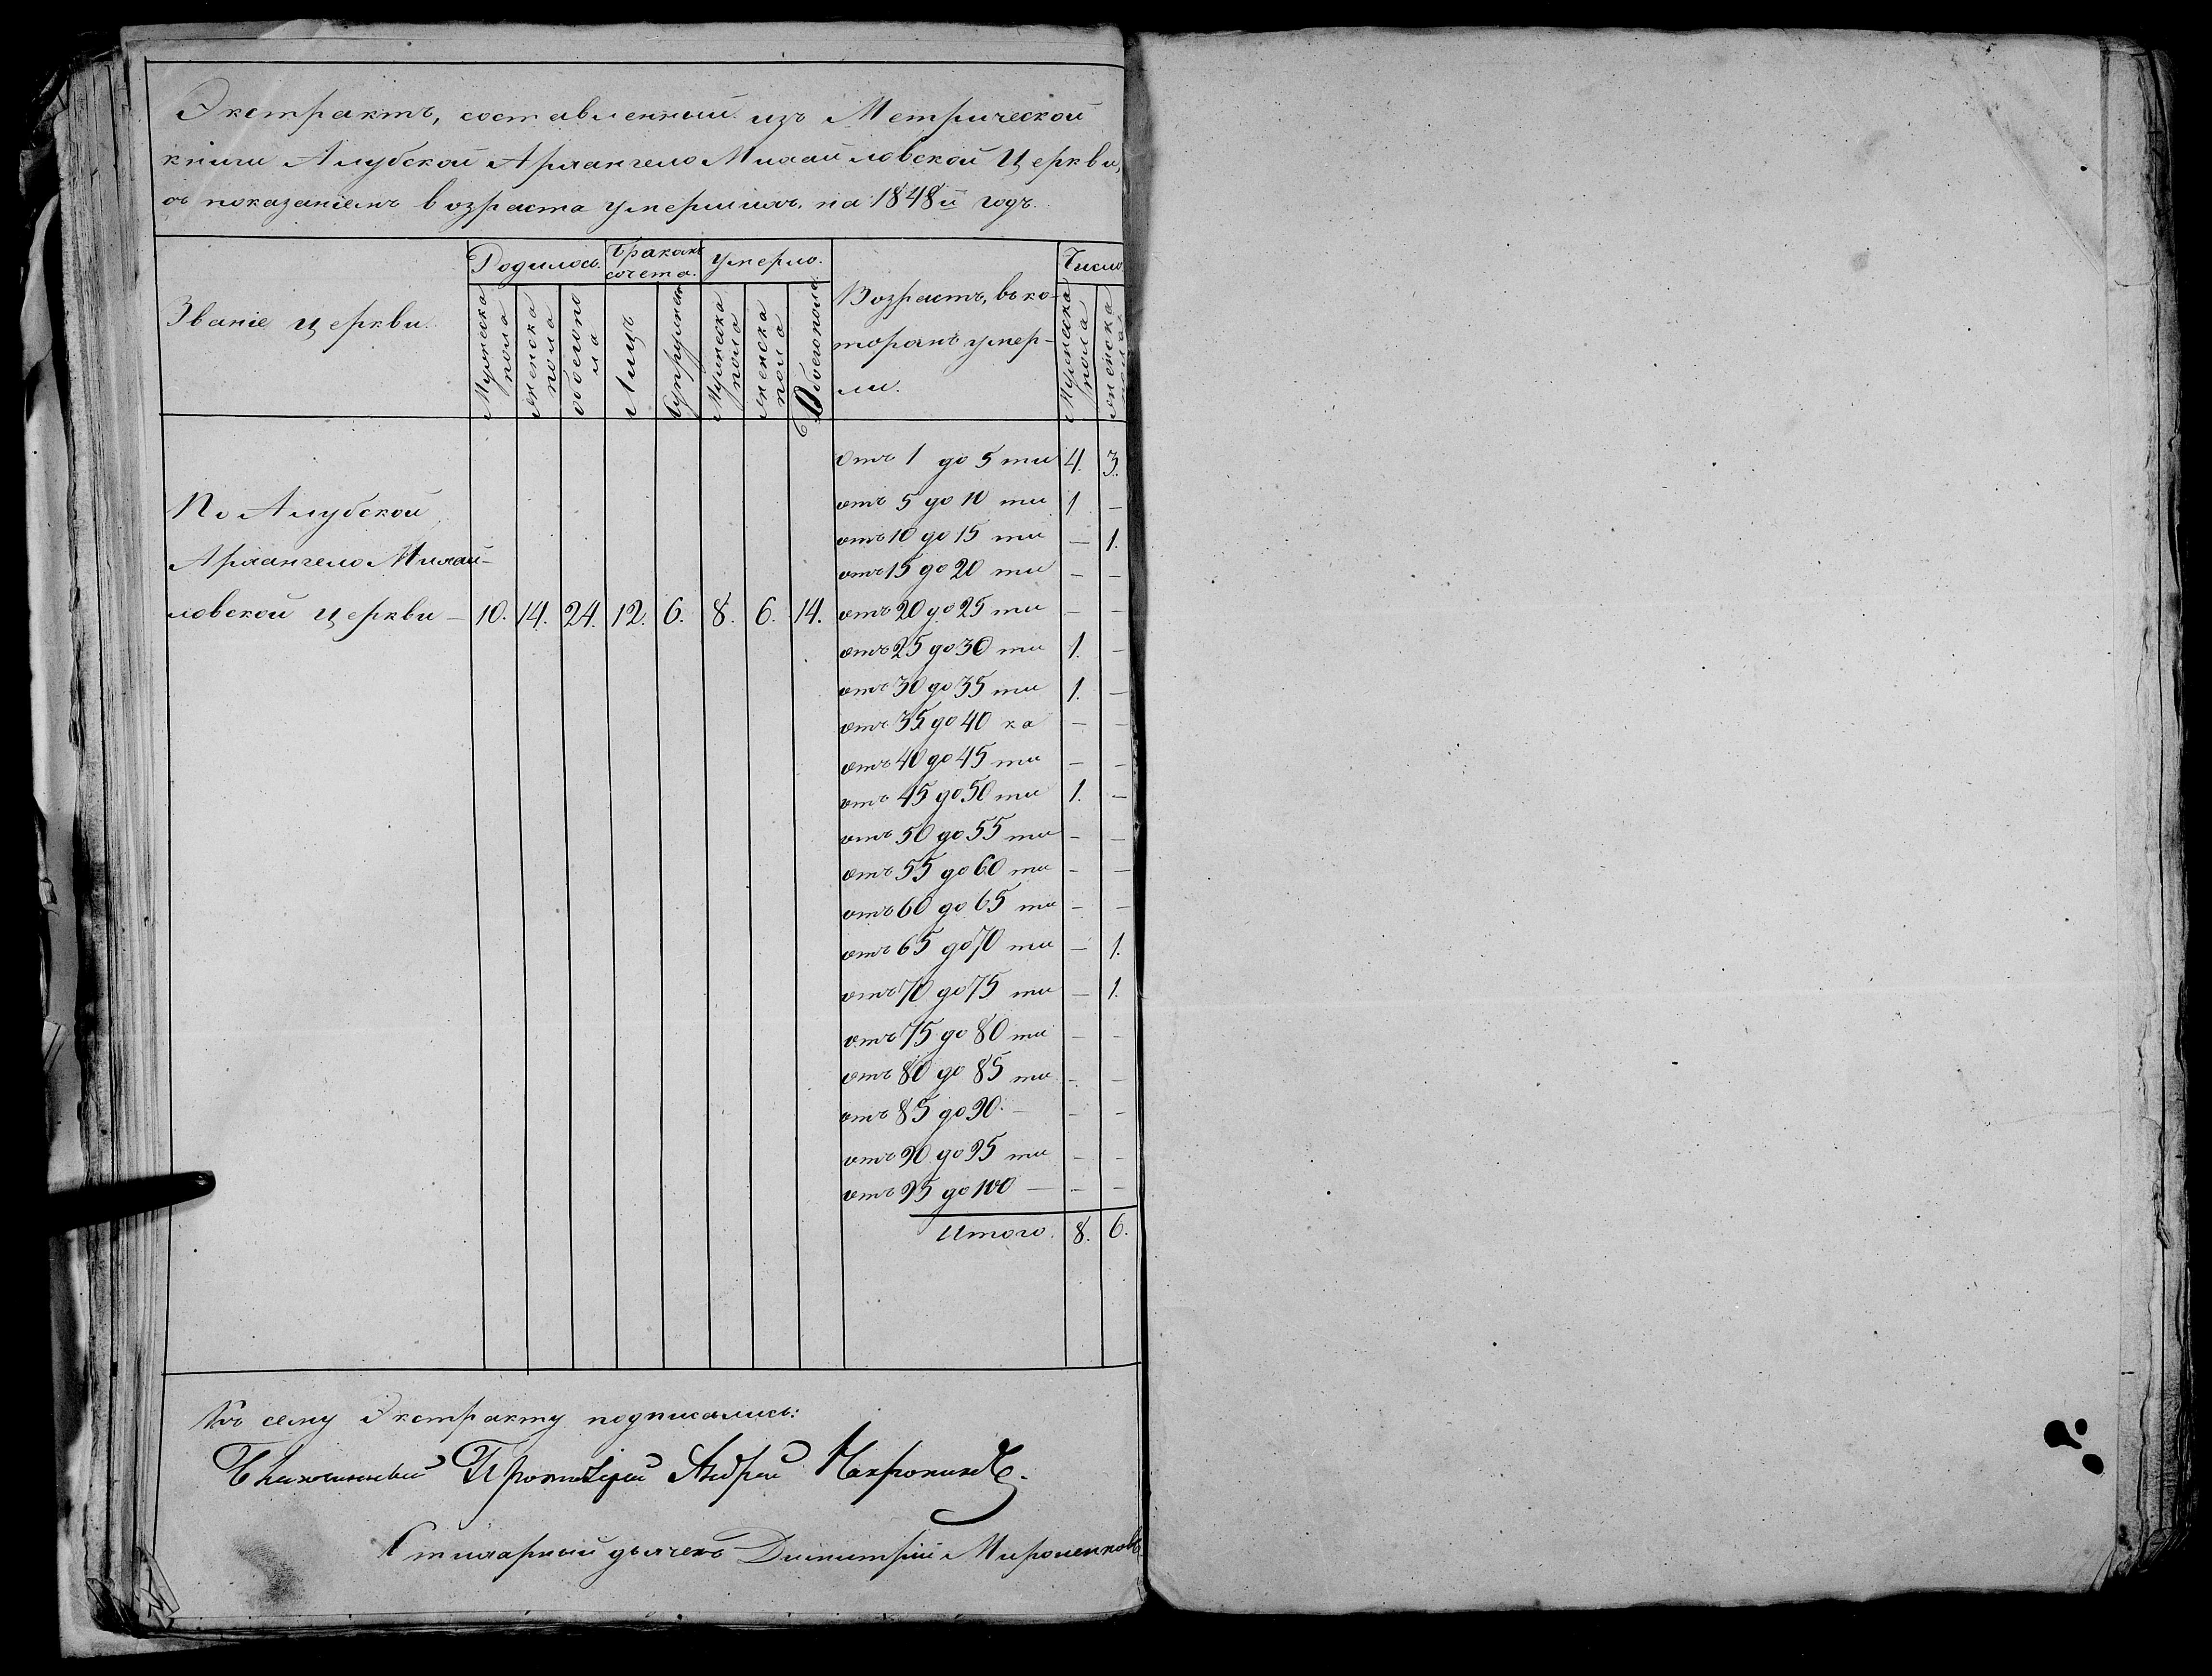 Экстрактъ, составленный изъ Метрической
книги Алубской Архангело Михайловской Церкви,
съ показаніемъ возраста умершихъ, на 1848й годъ.
Званіе церкви. Родилось. Бракомъ сочета. Умерло. Возрастъ, въ которомъ умерли. Число
Мужеска пола Женска пола Обоего пола Лицъ Супружн Мужеска пола Женска пола Обоего пола Мужеска пола Женска пола
отъ 1 до 5 ти 4. 3.
По Алубской отъ 5 до 10 ти 1 –
отъ 10 до 15 ти – 1.
Архангело Михай-
отъ 15 до 20 ти – –
ловской церкви – 10. 14. 24. 12. 6. 8. 6. 14. отъ 20 до 25 ти – –
отъ 25 до 30 ти 1. –
отъ 30 до 35 ти 1. –
отъ 35 до 40 ка – –
отъ 40 до 45 ти – –
отъ 45 до 50 ти 1. –
отъ 50 до 55 ти – –
отъ 55 до 60 ти – –
отъ 60 до 65 ти – –
отъ 65 до 70 ти – 1.
отъ 70 до 75 ти – 1.
отъ 75 до 80 ти – –
отъ 80 до 85 ти – –
отъ 85 до 90. – – –
отъ 90 до 95 ти – –
отъ 95 до 100 – – –
Итого. 8. 6.
Къ сему Экстракту подписались:
Протоіерей Андрей
Стихарный дьячекъ Димитрій Мироненковъ